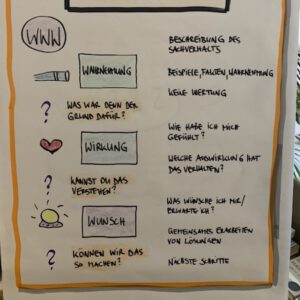 WWW
BESCHREIBUNG DES
SACHVERHALTS
WAHRNEHMUNG
BEISPIELE, FAKTEN, WAHRNEHMUNG
KEINE WERTUNG
? WAS WAR DENN DER
GRUND DAFÜR?
WIE HABE ICH MICH
GEFÜHLT?
WIRKUNG
WELCHE AUSWIRKUNG HAT
DAS VERHALTEN?
? KANNST DU DAS
VERSTEHEN?
WAS WÜNSCHE ICH MIR/
ERWARTE ICH?
WUNSCH
GEMEINSAMES ERARBEITEN
VON LÖSUNGEN
? KÖNNEN WIR DAS
SO MACHEN?
NÄCHSTE SCHRITTE